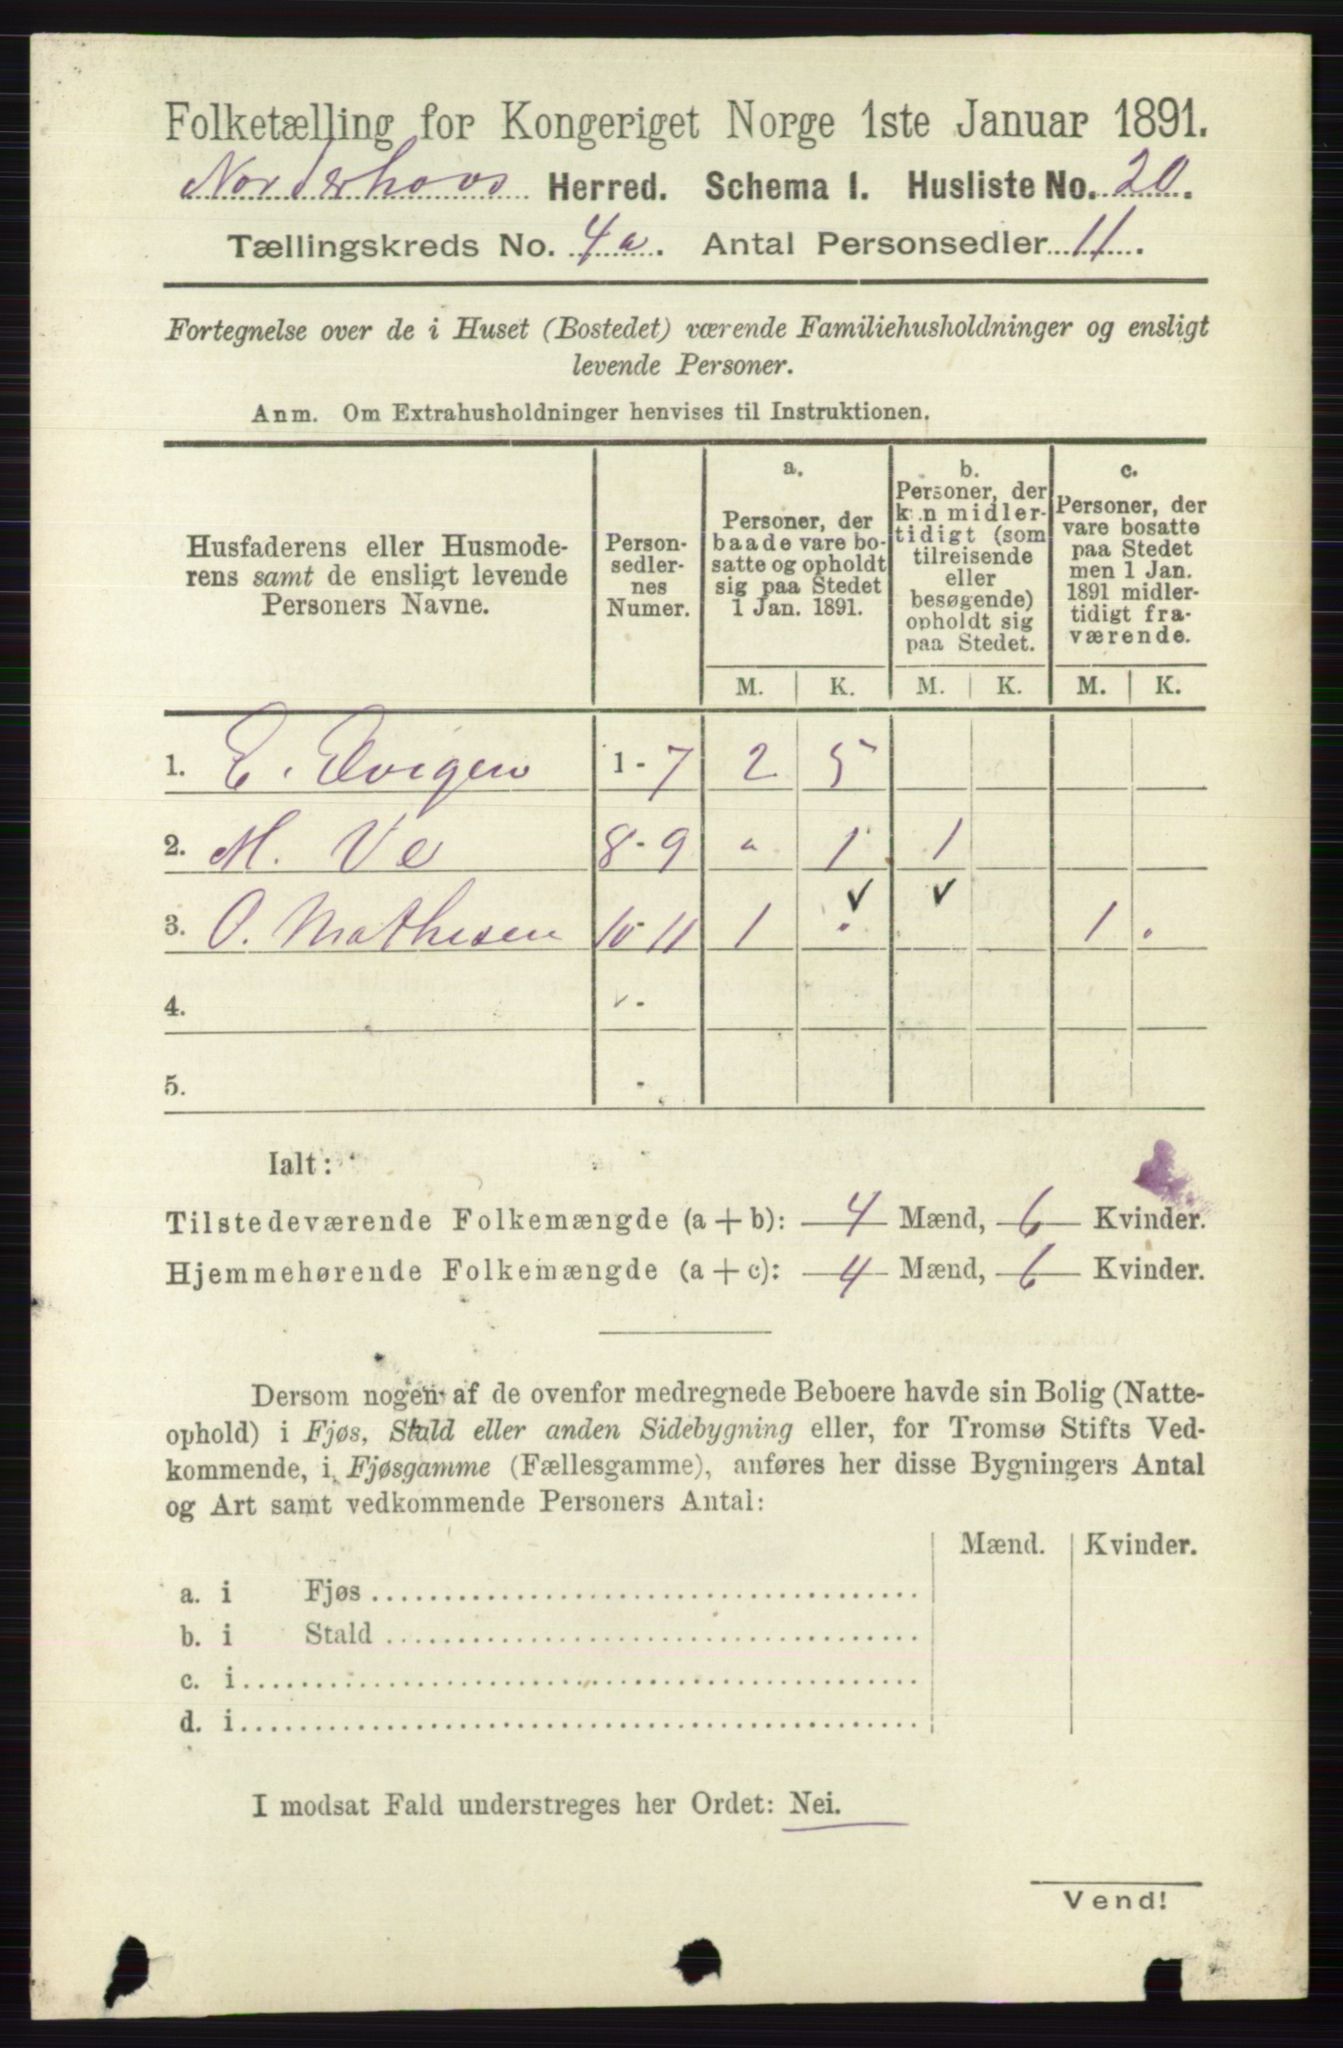 Folketælling for Kongeriget Norge 1ste Januar 1891.
Norderhovs Herred. Schema I. Husliste No. 20.
Tællingskreds No. 4a. Antal Personsedler 11.
Fortegnelse over de i Huset (Bostedet) værende Familiehusholdninger og ensligt
levende Personer.
Anm. Om Extrahusholdninger henvises til Instruktionen.
Husfaderens eller Husmode-
rens samt de ensligt levende
Personers Navne.
Person-
sedler-
nes
Numer.
a.
Personer, der
baade vare bo-
satte og opholdt
sig paa Stedet
1 Jan. 1891.
b.
Personer, der
kun midler-
tidigt (som
tilreisende
eller
besøgende)
opholdt sig
paa Stedet.
c.
Personer, der
vare bosatte
paa Stedet
men 1 Jan.
1891 midler-
tidigt fra-
værende.
M. K. M. K. M. K.
1. E. 1-7 2 5
2. M. Ve 8-9 " 1 1
3. O. Mathesen 10-11 1 . 1 .
4. -
5. -
Ialt:
Tilstedeværende Folkemængde (a+b): 4 Mænd, 6 Kvinder.
Hjemmehørende Folkemængde (a+c): 4 Mænd, 6 Kvinder.
Dersom nogen af de ovenfor medregnede Beboere havde sin Bolig (Natte-
ophold) i Fjøs, Stald eller anden Sidebygning eller, for Tromsø Stifts Ved-
kommende, i Fjøsgamme (Fællesgamme), anføres her disse Bygningers Antal
og Art samt vedkommende Personers Antal:
Mænd. Kvinder.
a. i Fjøs
b. i Stald
c. i
d. i
I modsat Fald understreges her Ordet: Nei.
Vend!